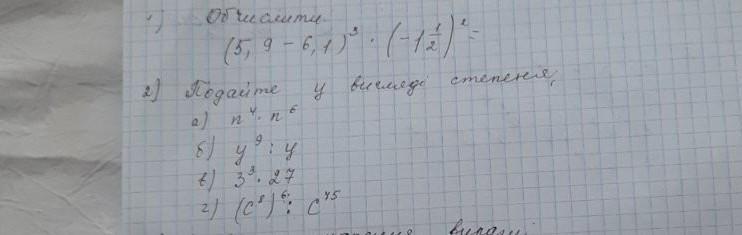 1) Обчислити
(5,9 - 6,1)³ · (-1 1/2)² =
2) Подайте у вигляді степеня,
а) n⁴ · n⁶
б) y⁹ : y
в) 3³ · 27
г) (c⁸)⁶ : c⁴⁵
вирази: